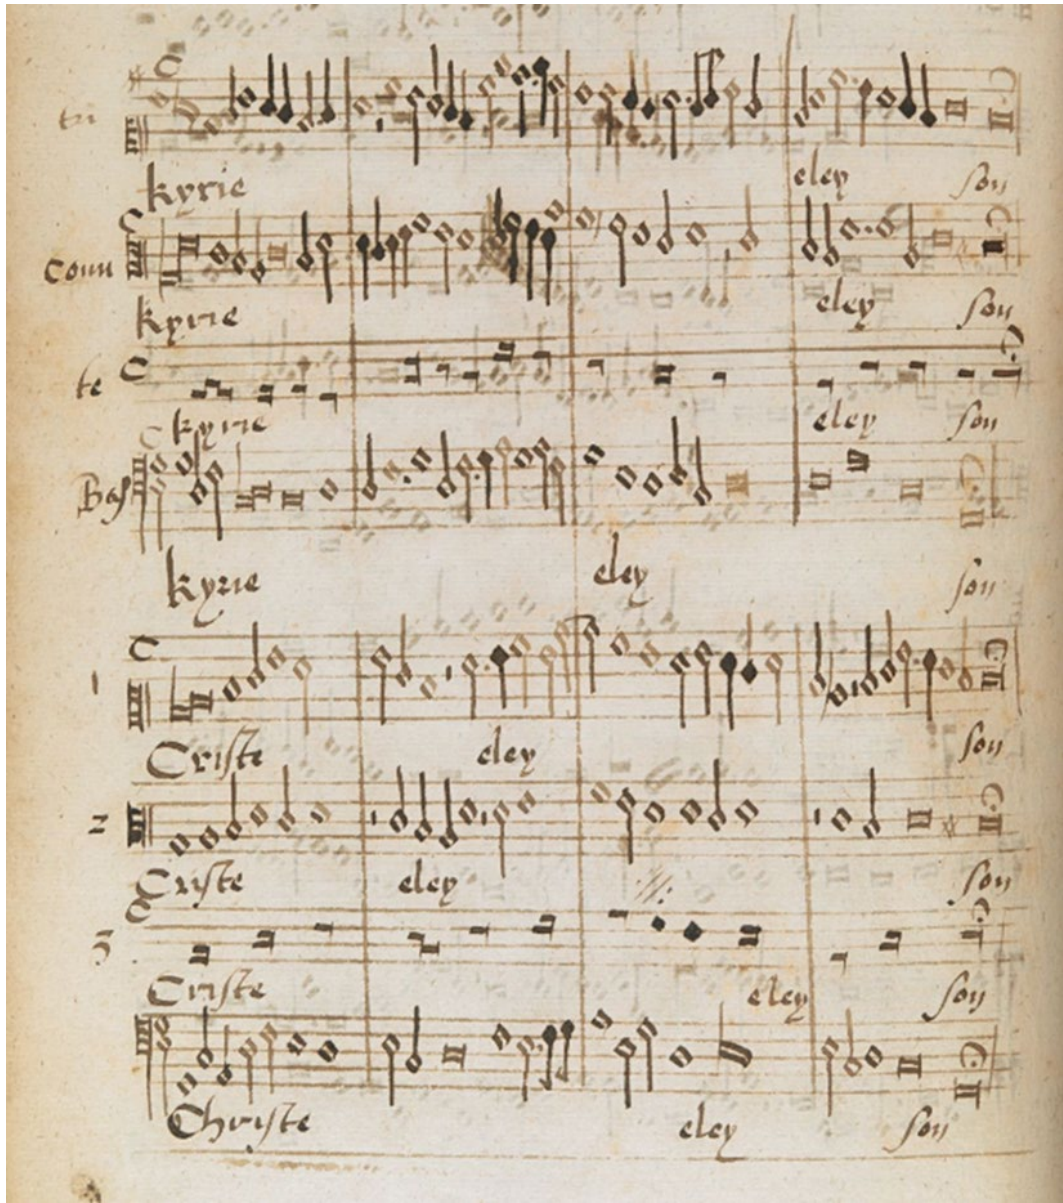 tri
kyrie eley son
Conn
kyrie eley son
te
kyrie eley son
Bas
kyrie eley son
1
Criste eley son
2
Criste eley son
3
Criste eley son
Christe eley son